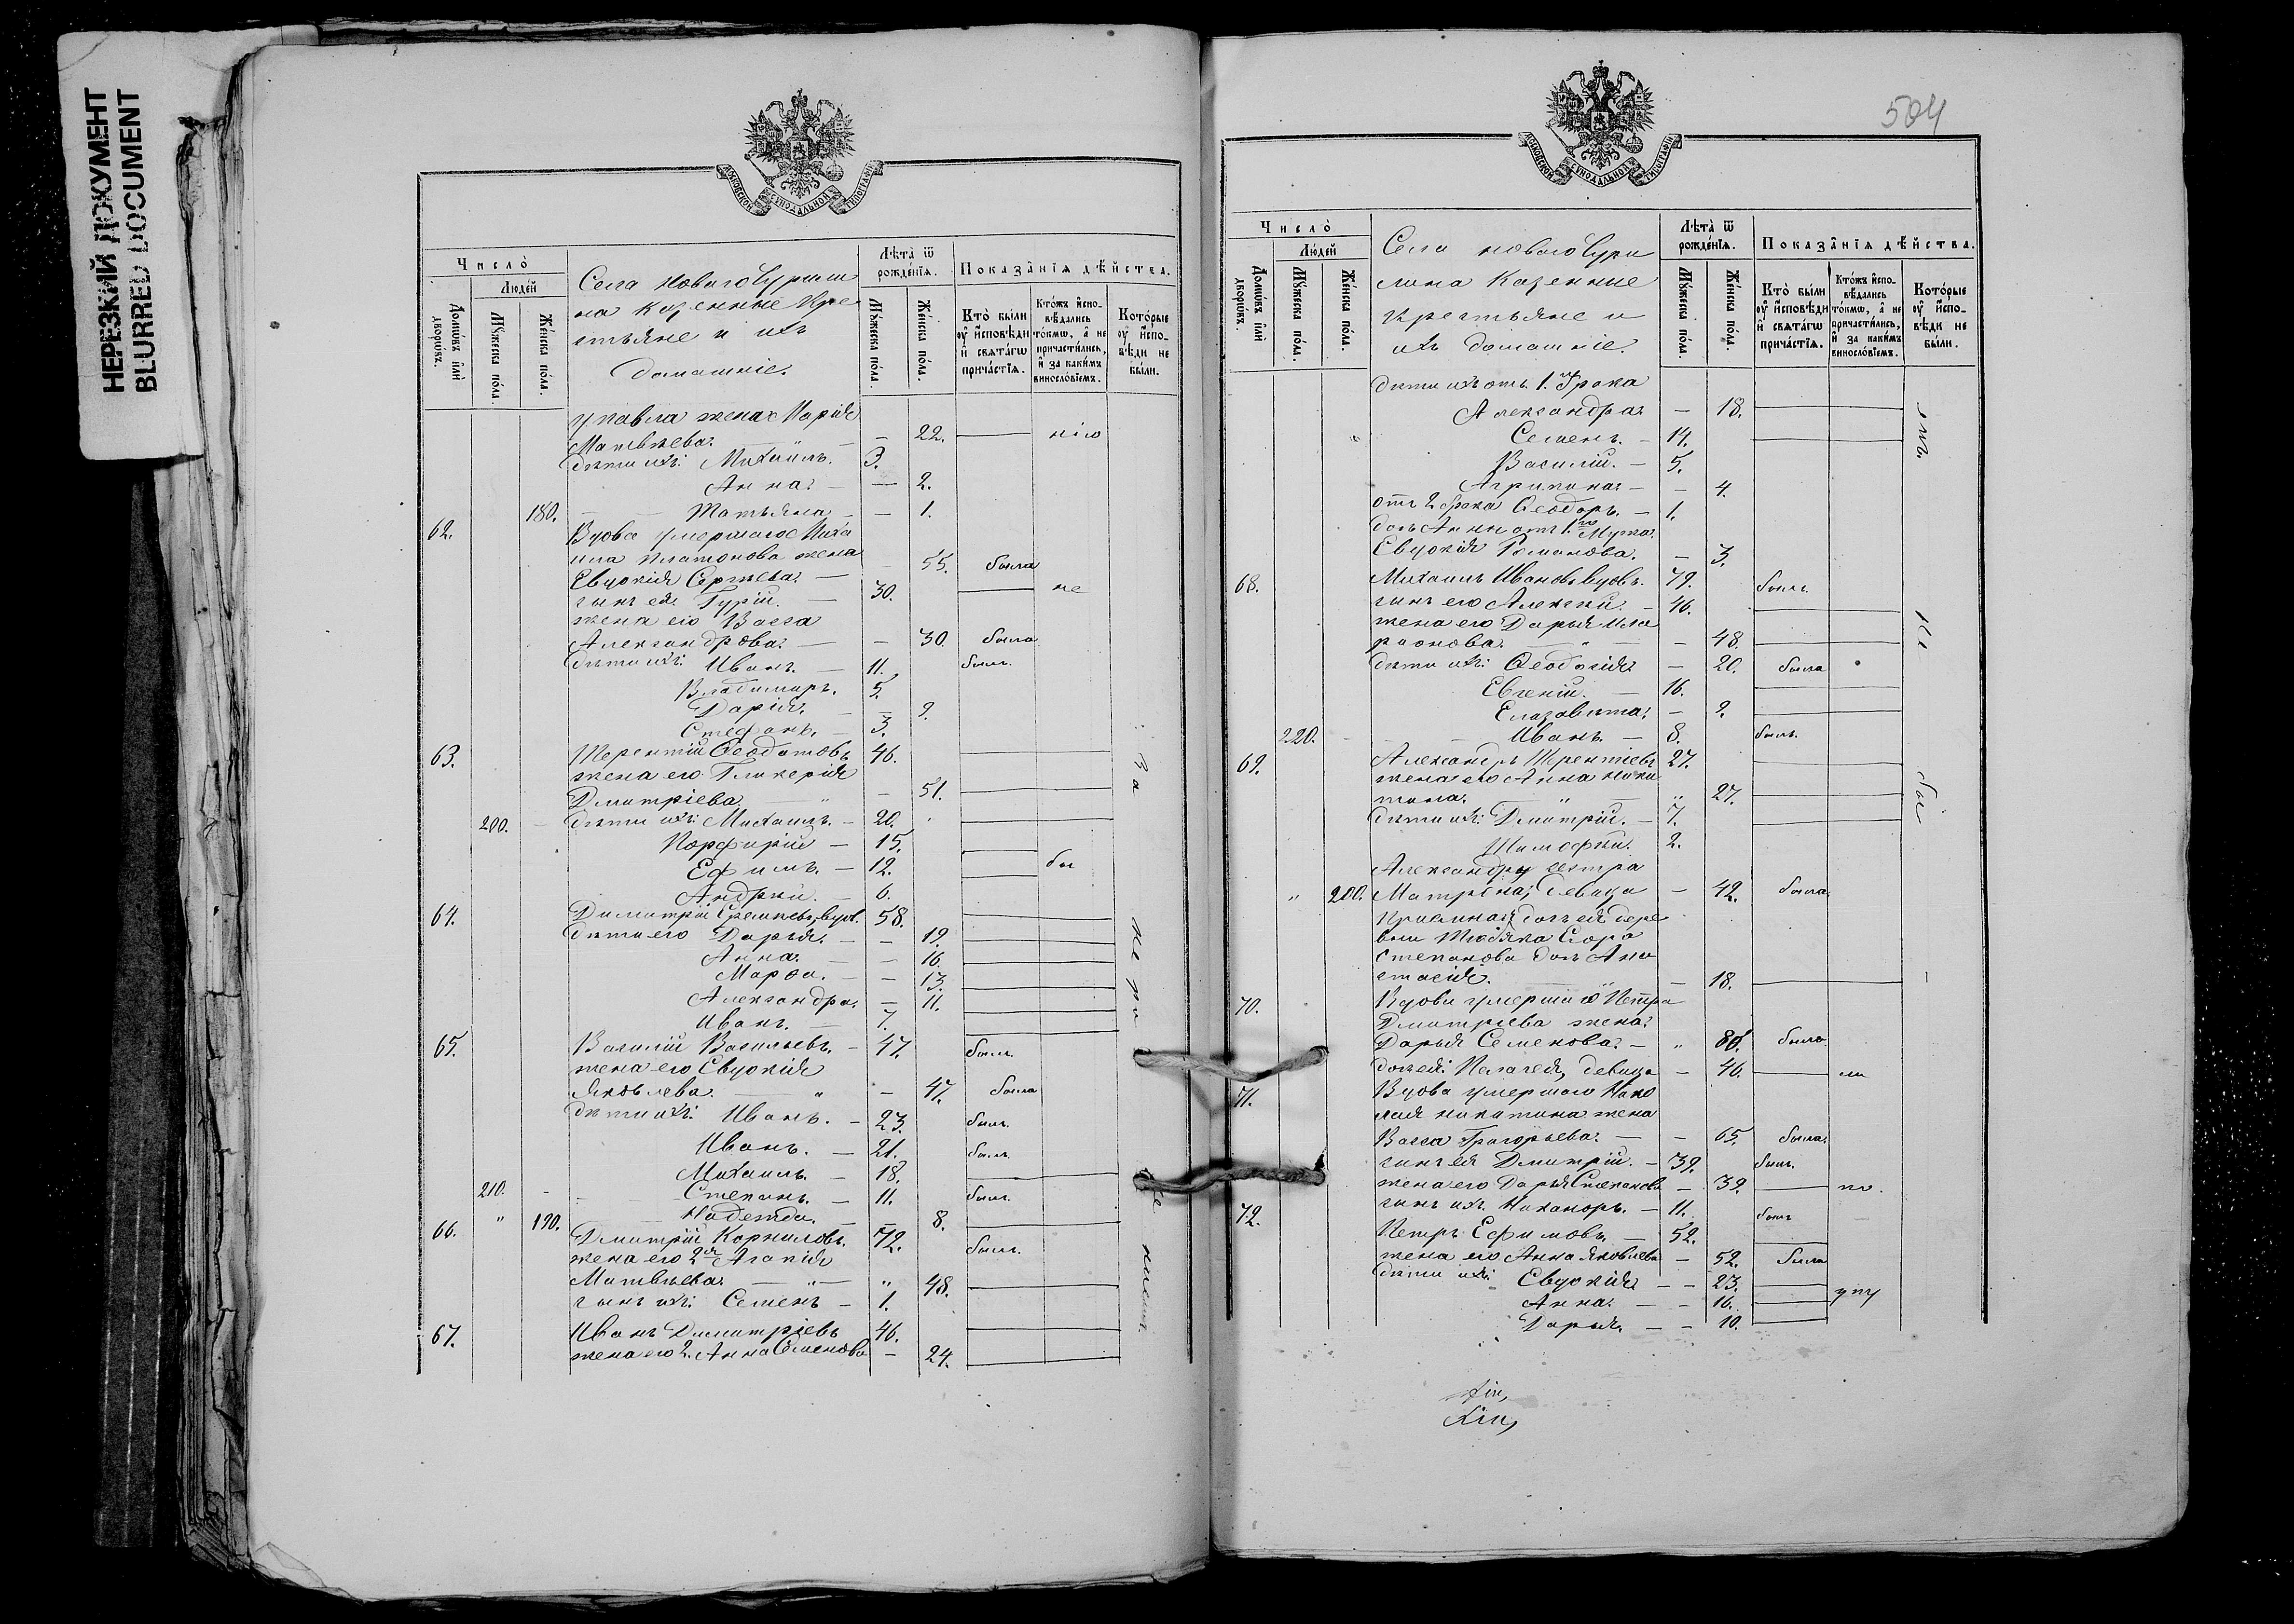 НЕРЕЗКИЙ ДОКУМЕНТ
BLURRED DOCUMENT
МОСКОВСКОЙ СѴНОДАЛЬНОЙ ТИПОГРАФІИ
Число̀
Людей
Домѡвъ или дворѡвъ.
Мꙋжеска пола.
Женска пола.
Села Новаго Бурши
на казенные кре
стьяне и ихъ
домашніе.
Лѣта ѿ рожденія.
Мꙋжеска пола.
Женска пола.
Показанія дѣйства.
Кто были оу исповѣди и свѧтагѡ причастія.
Ктожъ исповѣдались токмѡ, а не причастились, и за какимъ винословіемъ.
Которые оу исповѣди не были.
у Павла жена Марія
Матвѣева. — 22. нію
дѣти ихъ: Михаилъ. 3.
Анна — 2.
180. Татьяна — 1.
62. Вдова умершаго Миха
ила Платонова жена
Евдокія Сергѣева — 55. была
сынъ ея Гурій. 30. не
жена его Васса
Александрова — 30. была
дѣти ихъ: Иванъ. — 11. былъ.
Владимиръ. 5.
Дарія. — 9.
Стефанъ. — 3.
63. Терентій Ѳеодотовъ 46.
жена его Гликерія
Дмитріева. „ — 51.
200. дѣти ихъ: Михаилъ. — 20.
Порфирій — 15.
Ефимъ. — 12. бы
Андрей. — 6.
64. Димитрій Еремѣевъ, вдов. 58.
дѣти его Дарья. — 19.
Анна. — 16.
Марѳа. — 13.
Александра. — 11.
Иванъ. — 7.
65. Василій Васильевъ. — 47. былъ.
жена его Евдокія
Яковлева. „ — 47. была
дѣти ихъ: Иванъ. — 23. былъ.
Иванъ. — 21. былъ.
Михаилъ. — 18.
210. Степанъ. — 11. былъ.
„ 190. Надежда. — 8.
66. Дмитрій Корниловъ. 72. былъ.
жена его 2я Агапія
Матвѣева — „ — „ 48.
сынъ ихъ: Семенъ — 1.
67. Иванъ Димитріевъ 46.
жена его 2. Анна Семенова — 24.
За
504
МОСКОВСКОЙ СѴНОДАЛЬНОЙ ТИПОГРАФІИ
Число̀
Людей
Домѡвъ или дворѡвъ.
Мꙋжеска пола.
Женска пола.
Села Новаго Бур
шина казенные
крестьяне и
ихъ домашніе.
Лѣта ѿ рожденія.
Мꙋжеска пола.
Женска пола.
Показанія дѣйства.
Кто были оу исповѣди и свѧтагѡ причастія.
Ктожъ исповѣдались токмѡ, а не причастились, и за какимъ винословіемъ.
Которые оу исповѣди не были.
дѣти ихъ отъ 1. брака
Александра — 18.
Семенъ. — 14.
Василій. — 5.
Агрипина — 4.
отъ 2 брака Ѳеодоръ. — 1.
дочь Анны отъ 1го мужа
Евдокія Романова. — 3.
68. Михаилъ Ивановъ вдовъ. 79. былъ.
сынъ его Алексѣй. — 46.
жена его Дарья Ила
ріонова. „ — 48.
дѣти ихъ: Ѳеодосія — 20. была
Евгеній. — 16.
Елизавета. — 9.
220. Иванъ. — 8. былъ.
69. Александръ Терентіевъ 27.
жена его Анна Ники
тина. „ „ 27.
дѣти ихъ: Дмитрій. — 7.
Тимофей. 2.
Александру сестра
„ 200. Матрена, девица — 42. была.
Пріемная дочь ея дере
вни
Степанова дочь Ана
стасія. — 18.
70. Вдова умершаго Петра
Дмитріева жена
Дарья Семенова — „ 80. была.
дочь ея: Пелагея, девица — 46. ли
71. Вдова умершаго Нико
лая Никитина жена
Васса Григорьева. — 65. была.
сынъ ея Дмитрій. — 39. былъ.
жена его Дарья Степанова — 39. по.
сынъ ихъ Никаноръ. — 11. былъ
72. Петръ Ефимовъ. — 52.
жена его Анна Яковлева — 52. была
дѣти ихъ: Евдокія — 23.
Анна — 16. упу
Дарья. — 10.
не
бы